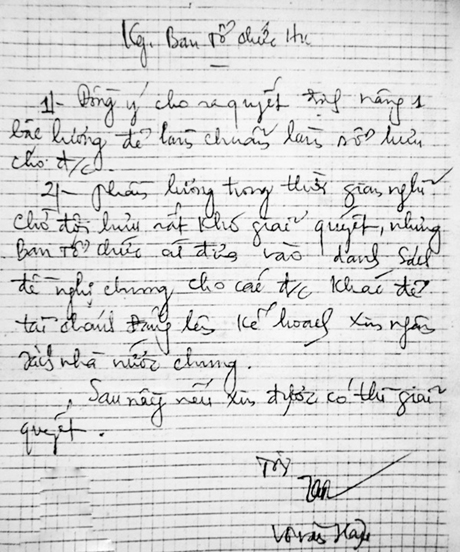 Kg. Ban Tổ chức
1/- Đồng ý cho ra quyết định nâng 1
bậc lương để làm chuẩn làm sổ hưu
cho đ/c.
2/- Phần lương trong thời gian nghỉ
chờ đợi hưu rất khó giải quyết, nhưng
Ban Tổ chức cứ đưa vào danh sách
đề nghị chung cho các đ/c khác để
tài chánh Đảng lên kế hoạch xin ngân
sách nhà nước chung.
Sau này nếu xin được có thể giải
quyết.
Võ Văn